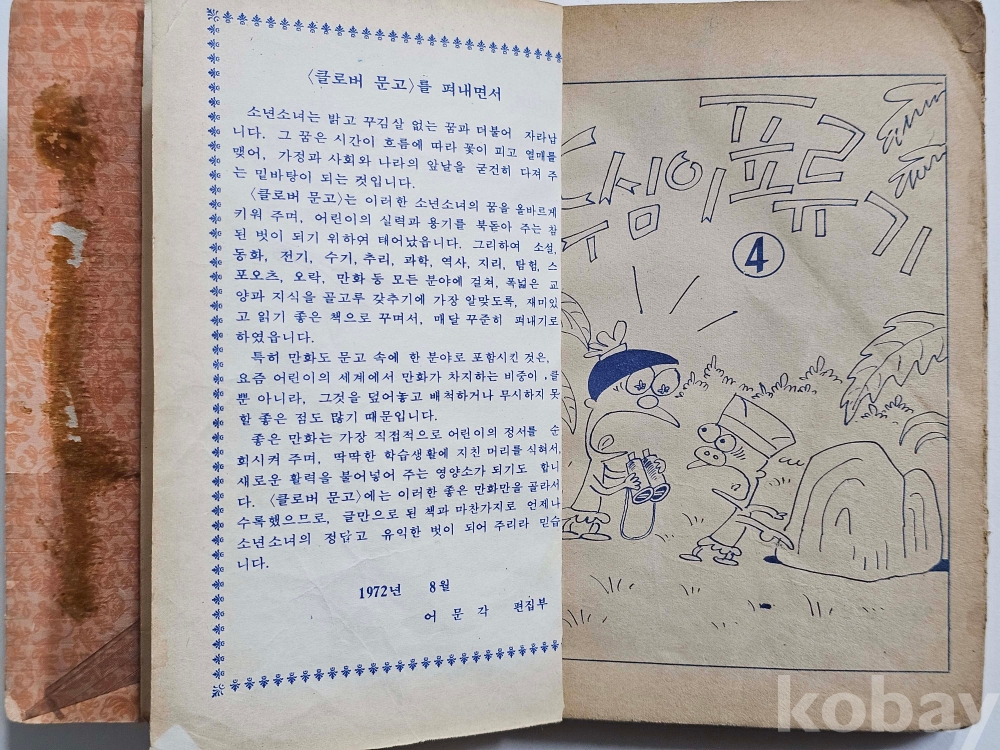 〈클로버 문고〉를 펴내면서
소년소녀는 밝고 꾸김살 없는 꿈과 더불어 자라납
니다. 그 꿈은 시간이 흐름에 따라 꽃이 피고 열매를
맺어, 가정과 사회와 나라의 앞날을 굳건히 다져 주
는 밑바탕이 되는 것입니다.
〈클로버 문고〉는 이러한 소년소녀의 꿈을 올바르게
키워 주며, 어린이의 실력과 용기를 북돋아 주는 참
된 벗이 되기 위하여 태어났읍니다. 그리하여 소설,
동화, 전기, 수기, 추리, 과학, 역사, 지리, 탐험, 스
포오츠, 오락, 만화 등 모든 분야에 걸쳐, 폭넓은 교
양과 지식을 골고루 갖추기에 가장 알맞도록, 재미있
고 읽기 좋은 책으로 꾸며서, 매달 꾸준히 펴내기로
하였읍니다.
특히 만화도 문고 속에 한 분야로 포함시킨 것은,
요즘 어린이의 세계에서 만화가 차지하는 비중이 클
뿐 아니라, 그것을 덮어놓고 배척하거나 무시하지 못
할 좋은 점도 많기 때문입니다.
좋은 만화는 가장 직접적으로 어린이의 정서를 순
회시켜 주며, 딱딱한 학습생활에 지친 머리를 식혀서,
새로운 활력을 불어넣어 주는 영양소가 되기도 합니
다. 〈클로버 문고〉에는 이러한 좋은 만화만을 골라서
수록했으므로, 글만으로 된 책과 마찬가지로 언제나
소년소녀의 정답고 유익한 벗이 되어 주리라 믿습
니다.
1972년 8월
어문각 편집부
두심이표류기
④
kobay